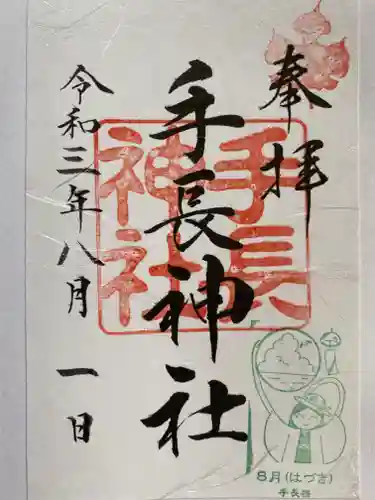 奉拝
手長神社
手長
神社
令和三年八月一日
8月(はづき)
手長様